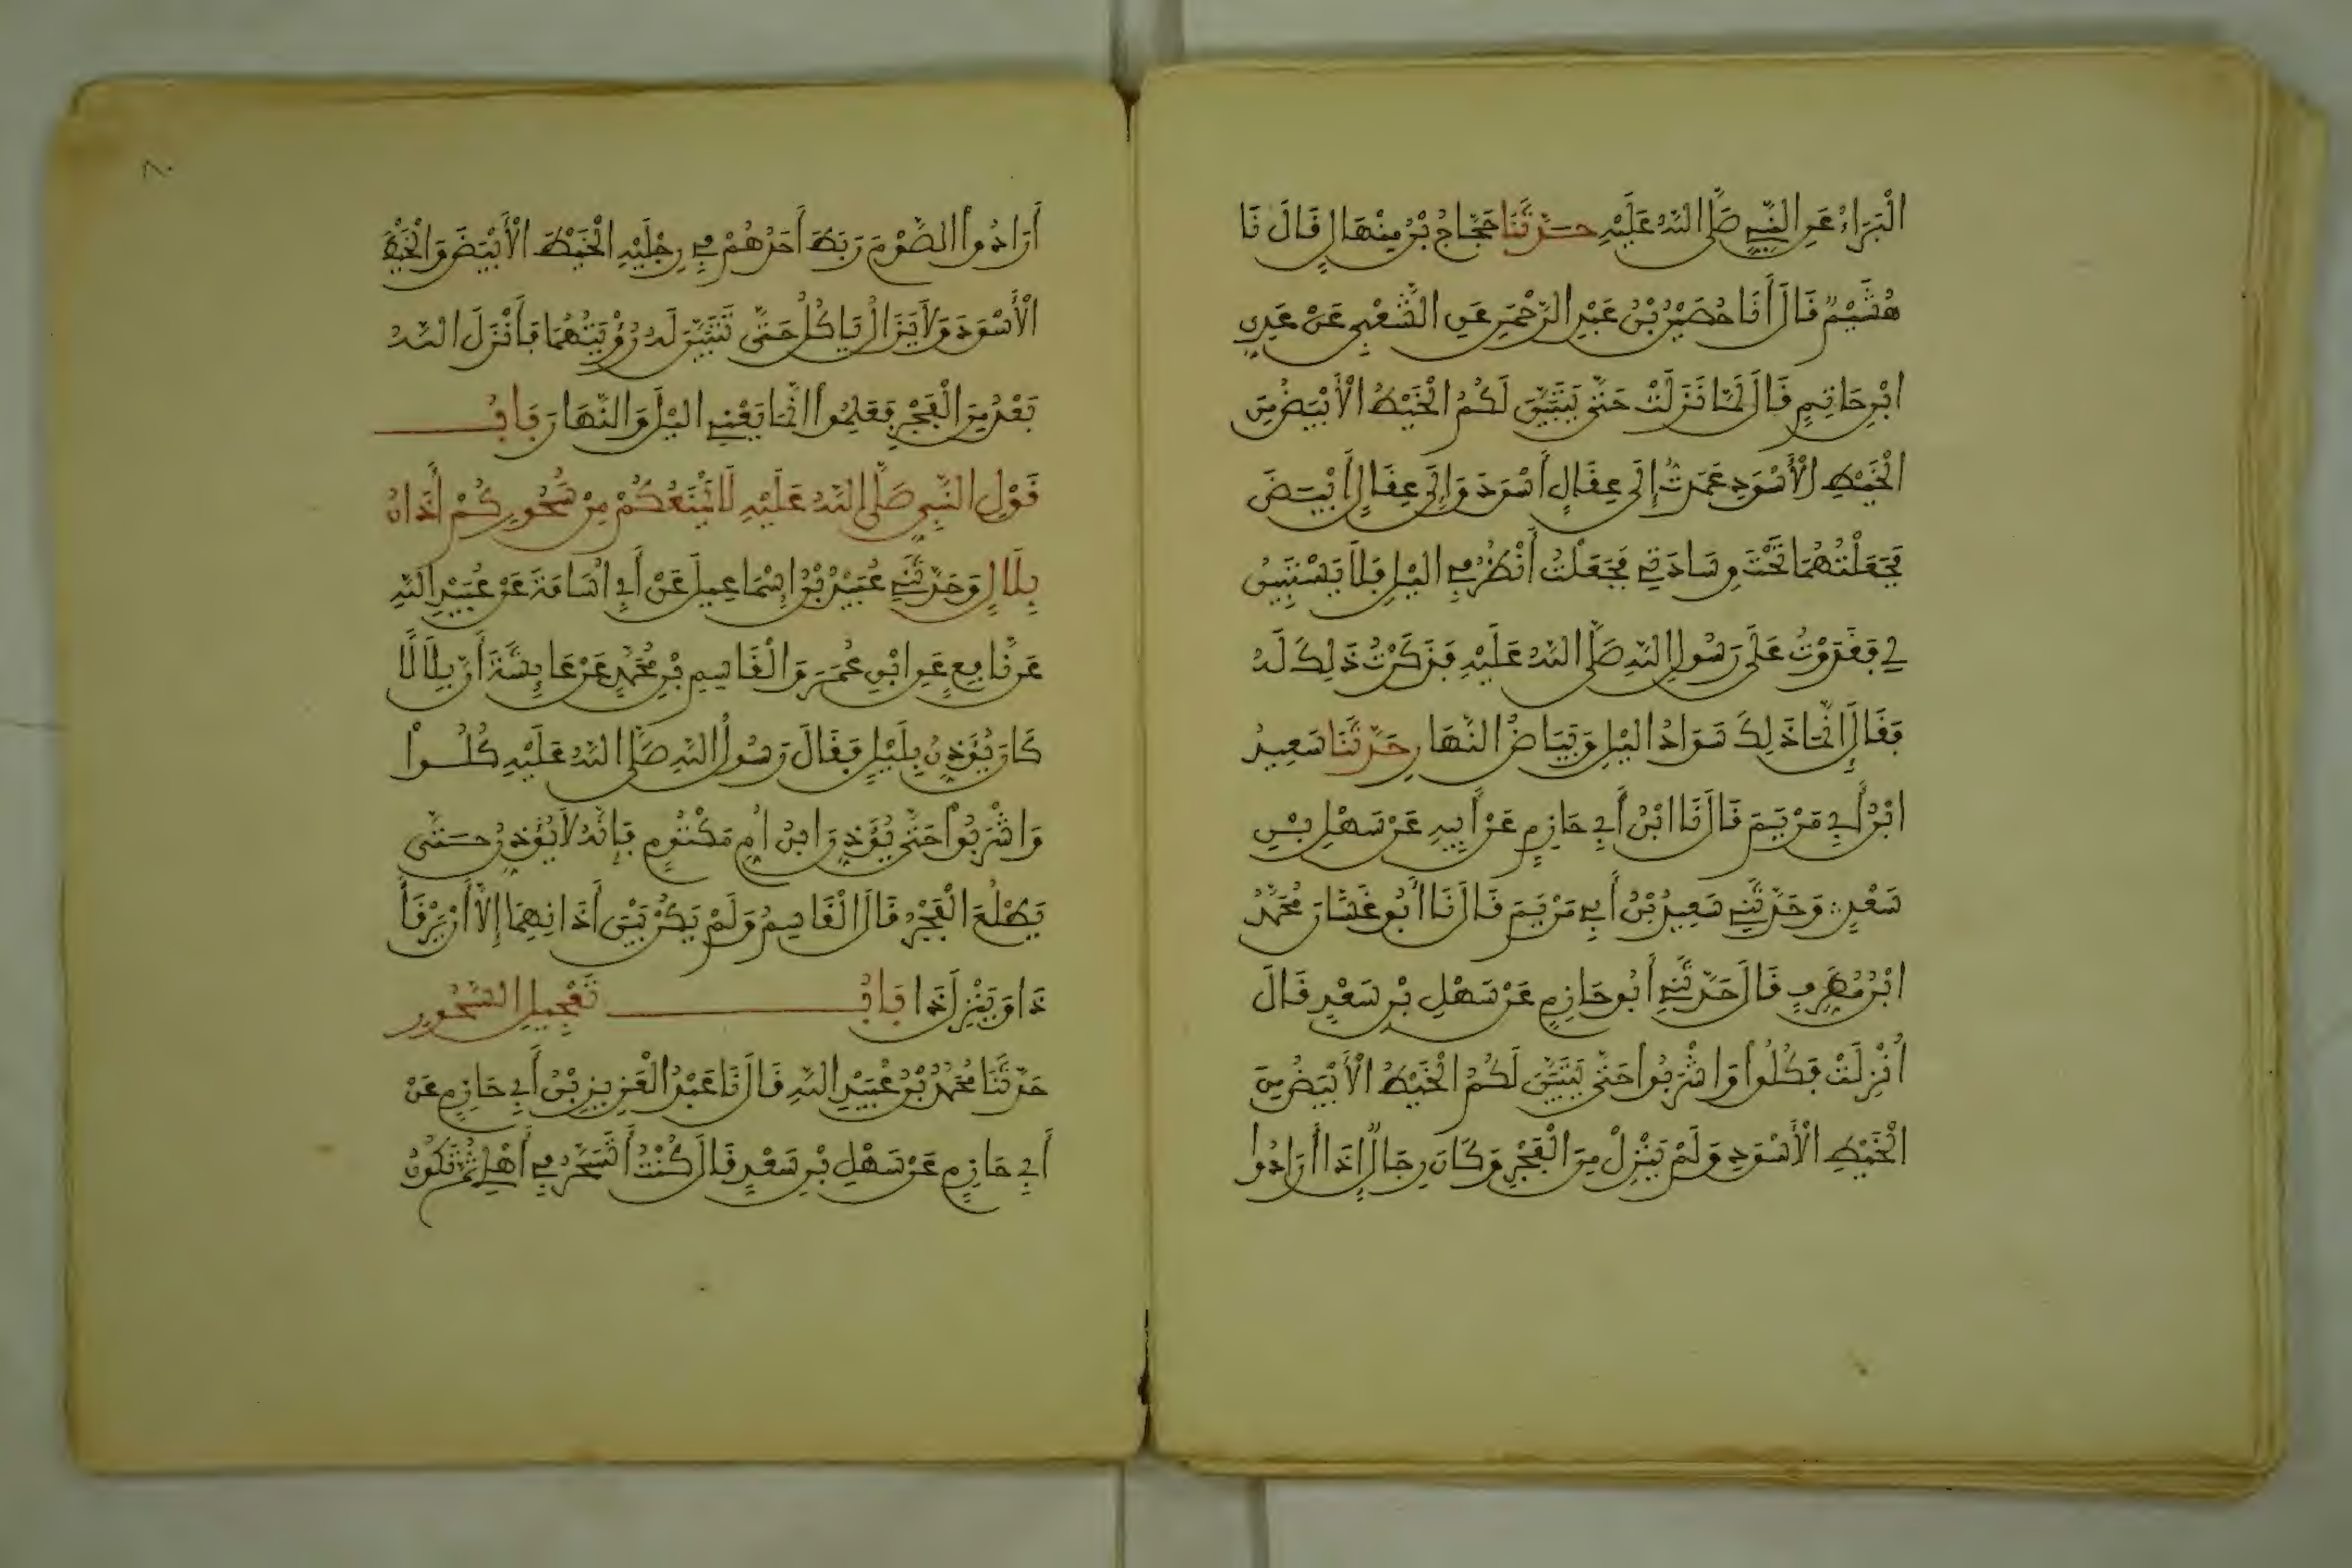 الْبَرَاءُ عَنِ النَّبِيِّ صَلَّى اللَّهُ عَلَيْهِ حَدَّثَنَا حَجَّاجُ بْنُ مِنْهَالٍ قَالَ نَا
هُشَيْمٌ قَالَ أَنَا حُصَيْنُ بْنُ عَبْدِ الرَّحْمَنِ عَنِ الشَّعْبِيِّ عَنْ عَدِيِّ
ابْنِ حَاتِمٍ قَالَ لَمَّا نَزَلَتْ حَتَّى يَتَبَيَّنَ لَكُمُ الْخَيْطُ الْأَبْيَضُ مِنَ
الْخَيْطِ الْأَسْوَدِ عَمَدْتُ إِلَى عِقَالٍ أَسْوَدَ وَإِلَى عِقَالٍ أَبْيَضَ
فَجَعَلْتُهُمَا تَحْتَ وِسَادَتِي فَجَعَلْتُ أَنْظُرُ فِي الَّيْلِ فَلَا يَسْتَبِينُ
لِي فَغَدَوْتُ عَلَى رَسُولِ اللَّهِ صَلَّى اللَّهُ عَلَيْهِ فَذَكَرْتُ ذَلِكَ لَهُ
فَقَالَ إِنَّمَا ذَلِكَ سَوَادُ الَّيْلِ وَبَيَاضُ النَّهَارِ حَدَّثَنَا سَعِيدُ
ابْنُ أَبِي مَرْيَمَ قَالَ نَا ابْنُ أَبِي حَازِمٍ عَنْ أَبِيهِ عَنْ سَهْلِ بْنِ
سَعْدٍ وَحَدَّثَنِي سَعِيدُ بْنُ أَبِي مَرْيَمَ قَالَ نَا أَبُو غَسَّانَ مُحَمَّدُ
ابْنُ مُطَرِّفٍ قَالَ حَدَّثَنِي أَبُو حَازِمٍ عَنْ سَهْلِ بْنِ سَعْدٍ قَالَ
أُنْزِلَتْ فَكُلُوا وَاشْرَبُوا حَتَّى يَتَبَيَّنَ لَكُمُ الْخَيْطُ الْأَبْيَضُ مِنَ
الْخَيْطِ الْأَسْوَدِ وَلَمْ يَنْزِلْ مِنَ الْفَجْرِ وَكَانَ رِجَالٌ إِذَا أَرَادُوا
أَرَادُوا الصَّوْمَ رَبَطَ أَحَدُهُمْ فِي رِجْلَيْهِ الْخَيْطَ الْأَبْيَضَ وَالْخَيْطَ
الْأَسْوَدَ وَلَا يَزَالُ يَاكُلُ حَتَّى تَتَبَيَّنَ لَهُ رُؤْيَتُهُمَا فَأَنْزَلَ اللَّهُ
بَعْدُ مِنَ الْفَجْرِ فَعَلِمُوا انَّمَا يَعْنِي الَّيْلَ وَالنَّهَارَ بَابُ
قَوْلِ النَّبِيِّ صَلَّى اللَّهُ عَلَيْهِ لَا يَمْنَعُكُمْ مِنْ سَحُورِكُمْ أَذَانُ
بِلَالٍ وَحَدَّثَنِي عُبَيْدُ بْنُ إِسْمَاعِيلَ عَنْ أَبِي أُسَامَةَ عَنْ عُبَيْدِ اللَّهِ
عَنْ نَافِعٍ عَنِ ابْنِ عُمَرَ وَالْقَاسِمِ بْنِ مُحَمَّدٍ عَنْ عَائِشَةَ أَنَّ بِلَالًا
كَانَ يُؤَذِّنُ بِلَيْلٍ فَقَالَ رَسُولُ اللَّهِ صَلَّى اللَّهُ عَلَيْهِ كُلُوا
وَاشْرَبُوا حَتَّى يُؤَذِّنَ ابْنُ أُمِّ مَكْتُومٍ فَإِنَّهُ لَا يُؤَذِّنُ حَتَّى
يَطْلُعَ الْفَجْرُ قَالَ الْقَاسِمُ وَلَمْ يَكُنْ بَيْنَ أَذَانِهِمَا إِلَّا أَنْ يَرْقَأَ
ذَا وَيَنْزِلَ ذَا بَابُ تَعْجِيلِ السَّحُورِ
حَدَّثَنَا مُحَمَّدُ بْنُ عُبَيْدِ اللَّهِ قَالَ نَا عَبْدُ الْعَزِيزِ بْنُ أَبِي حَازِمٍ عَنْ
أَبِي حَازِمٍ عَنْ سَهْلِ بْنِ سَعْدٍ قَالَ كُنْتُ أَتَسَحَّرُ فِي أَهْلِي ثُمَّ تَكُونُ
٨٠